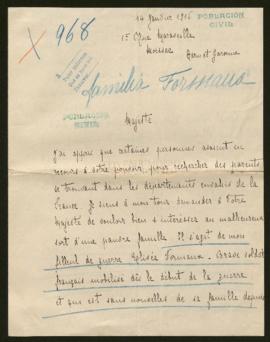 14 Janvier 1916
POBLACIÓN CIVIL
x 968
15 Rue Marseille
Moissac
Tarn et Garonne
Familia Formaux
POBLACIÓN
CIVIL
Majesté
J'ai appris que certaines personnes avaient eu
recours à votre pouvoir, pour rechercher des parents
se trouvant dans les départements envahis de la
France. Je viens à mon tour demander à Votre
Majesté de vouloir bien s'intéresser au malheureux
sort d'une pauvre famille. Il s'agit de mon
filleul de guerre Formaux. Brave soldat
français mobilisé dès le début de la guerre
et qui est sans nouvelles de sa famille depuis